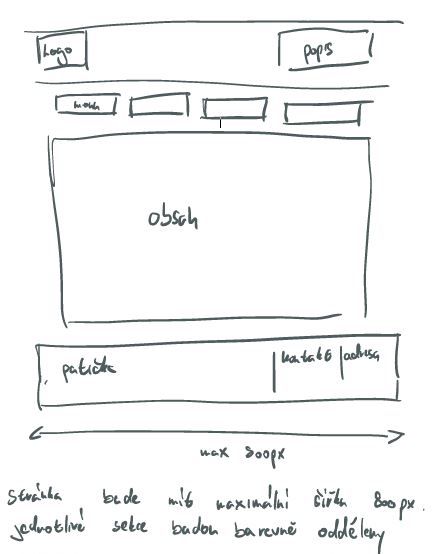 Logo
popis
menu
obsah
patička
kontakt
adresa
max 800px
Stránka bude mít maximální šířku 800px.
jednotlivé sekce budou barevně odděleny